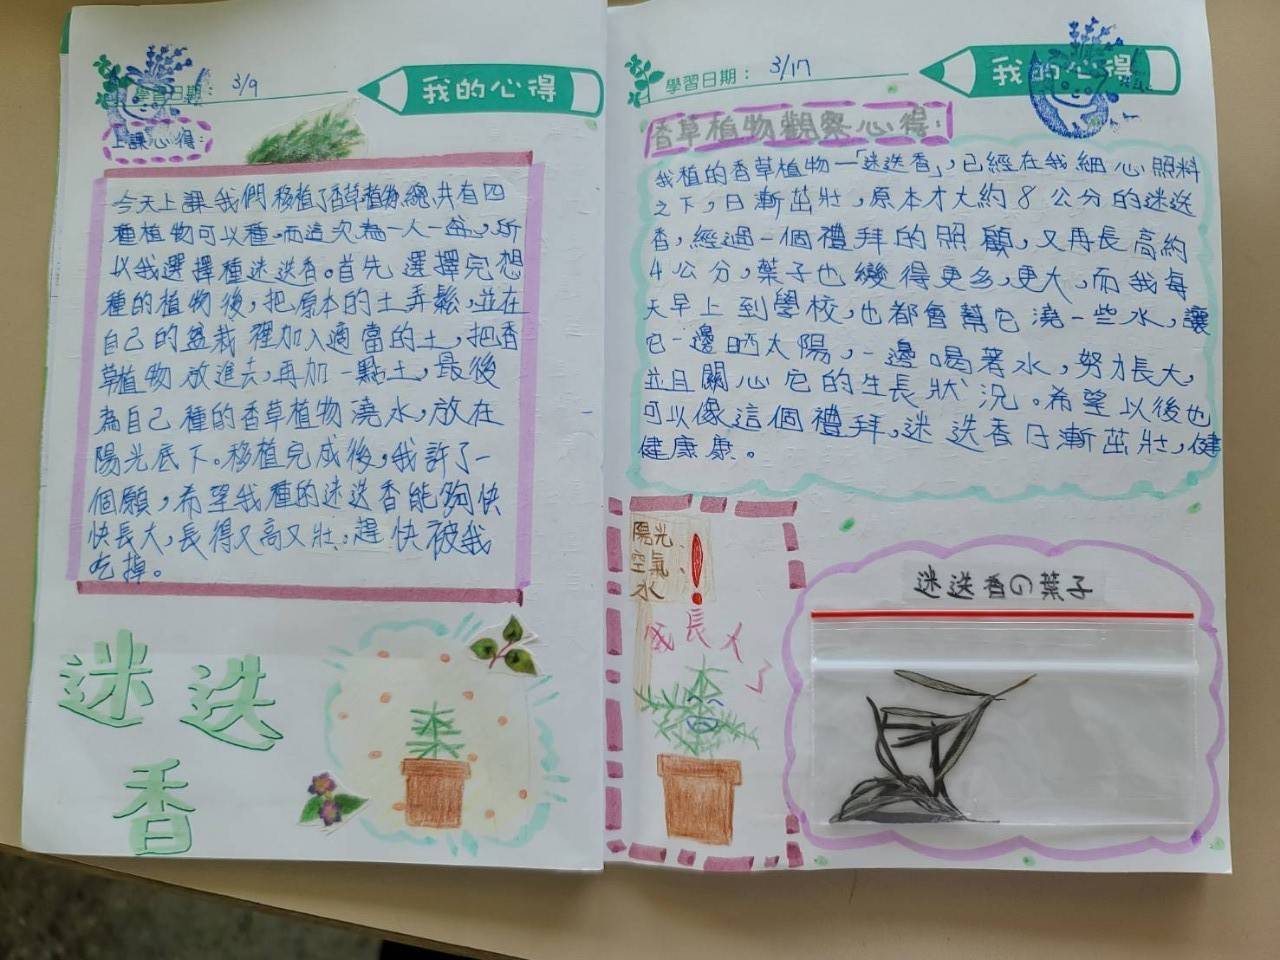 學習日期：
3/9
我的心得
上課心得：
今天上課我們移植了香草植物,總共有四
種植物可以種,而這次為一人一盆,所
以我選擇種迷迭香。首先選擇完想
種的植物後,把原本的土弄鬆,並在
自己的盆栽裡加入適當的土,把香
草植物放進去,再加一點土,最後
為自己種的香草植物澆水,放在
陽光底下。移植完成後,我許了一
個願,希望我種的迷迭香能夠快
快長大,長得又高又壯,趕快被我
吃掉。
迷迭
香
學習日期：
3/17
我的心得
香草植物觀察心得：
我植的香草植物一「迷迭香」,已經在我細心照料
之下,日漸茁壯,原本才大約8公分的迷迭
香,經過一個禮拜的照顧,又再長高約
4公分,葉子也變得更多,更大,而我每
天早上到學校,也都會幫它澆一些水,讓
它一邊晒太陽,一邊喝著水,努力長大,
並且關心它的生長狀況。希望以後也
可以像這個禮拜,迷迭香日漸茁壯,健
健康康。
陽光、
空氣、
水
!
成長大了
迷迭香の葉子